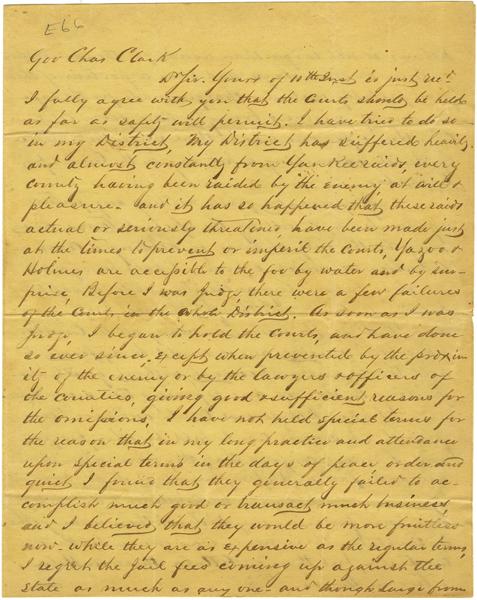 E66
Gov Chas Clark
Dr Sir. Yours of 10th Inst is just recd
I fully agree with you that the Courts should be held
as far as safety will permit. I have tried to do so
in my District, My District has suffered heavily
and almost constantly from Yankee raids, every
county having been raided by the enemy at will &
pleasure - and it has so happened that these raids
actual or seriously threatened, have been made just
at the times to prevent or imperil the Courts, Yazoo &
Holmes are accessible to the foe by water and by sur-
prise, Before I was Judge there were a few failures
of the Courts in the whole District. As soon as I was
Judge, I began to hold the Courts, and have done
so ever since, except when prevented by the proxim
ity of the enemy or by the lawyers & officers of
the counties, giving good & sufficient reasons for
the omissions, I have not held special terms for
the reason that in my long practice and attendance
upon special terms in the days of peace order and
quiet I found that they generally failed to ac-
complish much good or transact much business,
and I believed that they would be more fruitless
now - while they are as expensive as the regular terms,
I regret the Jail fees coming up against the
state as much as any one - and though large from